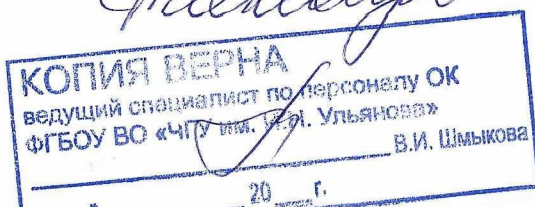 КОПИЯ ВЕРНА
ведущий специалист по персоналу ОК
ФГБОУ ВО «ЧГУ им. И.Н. Ульянова»
В.И. Шмыкова
20 г.